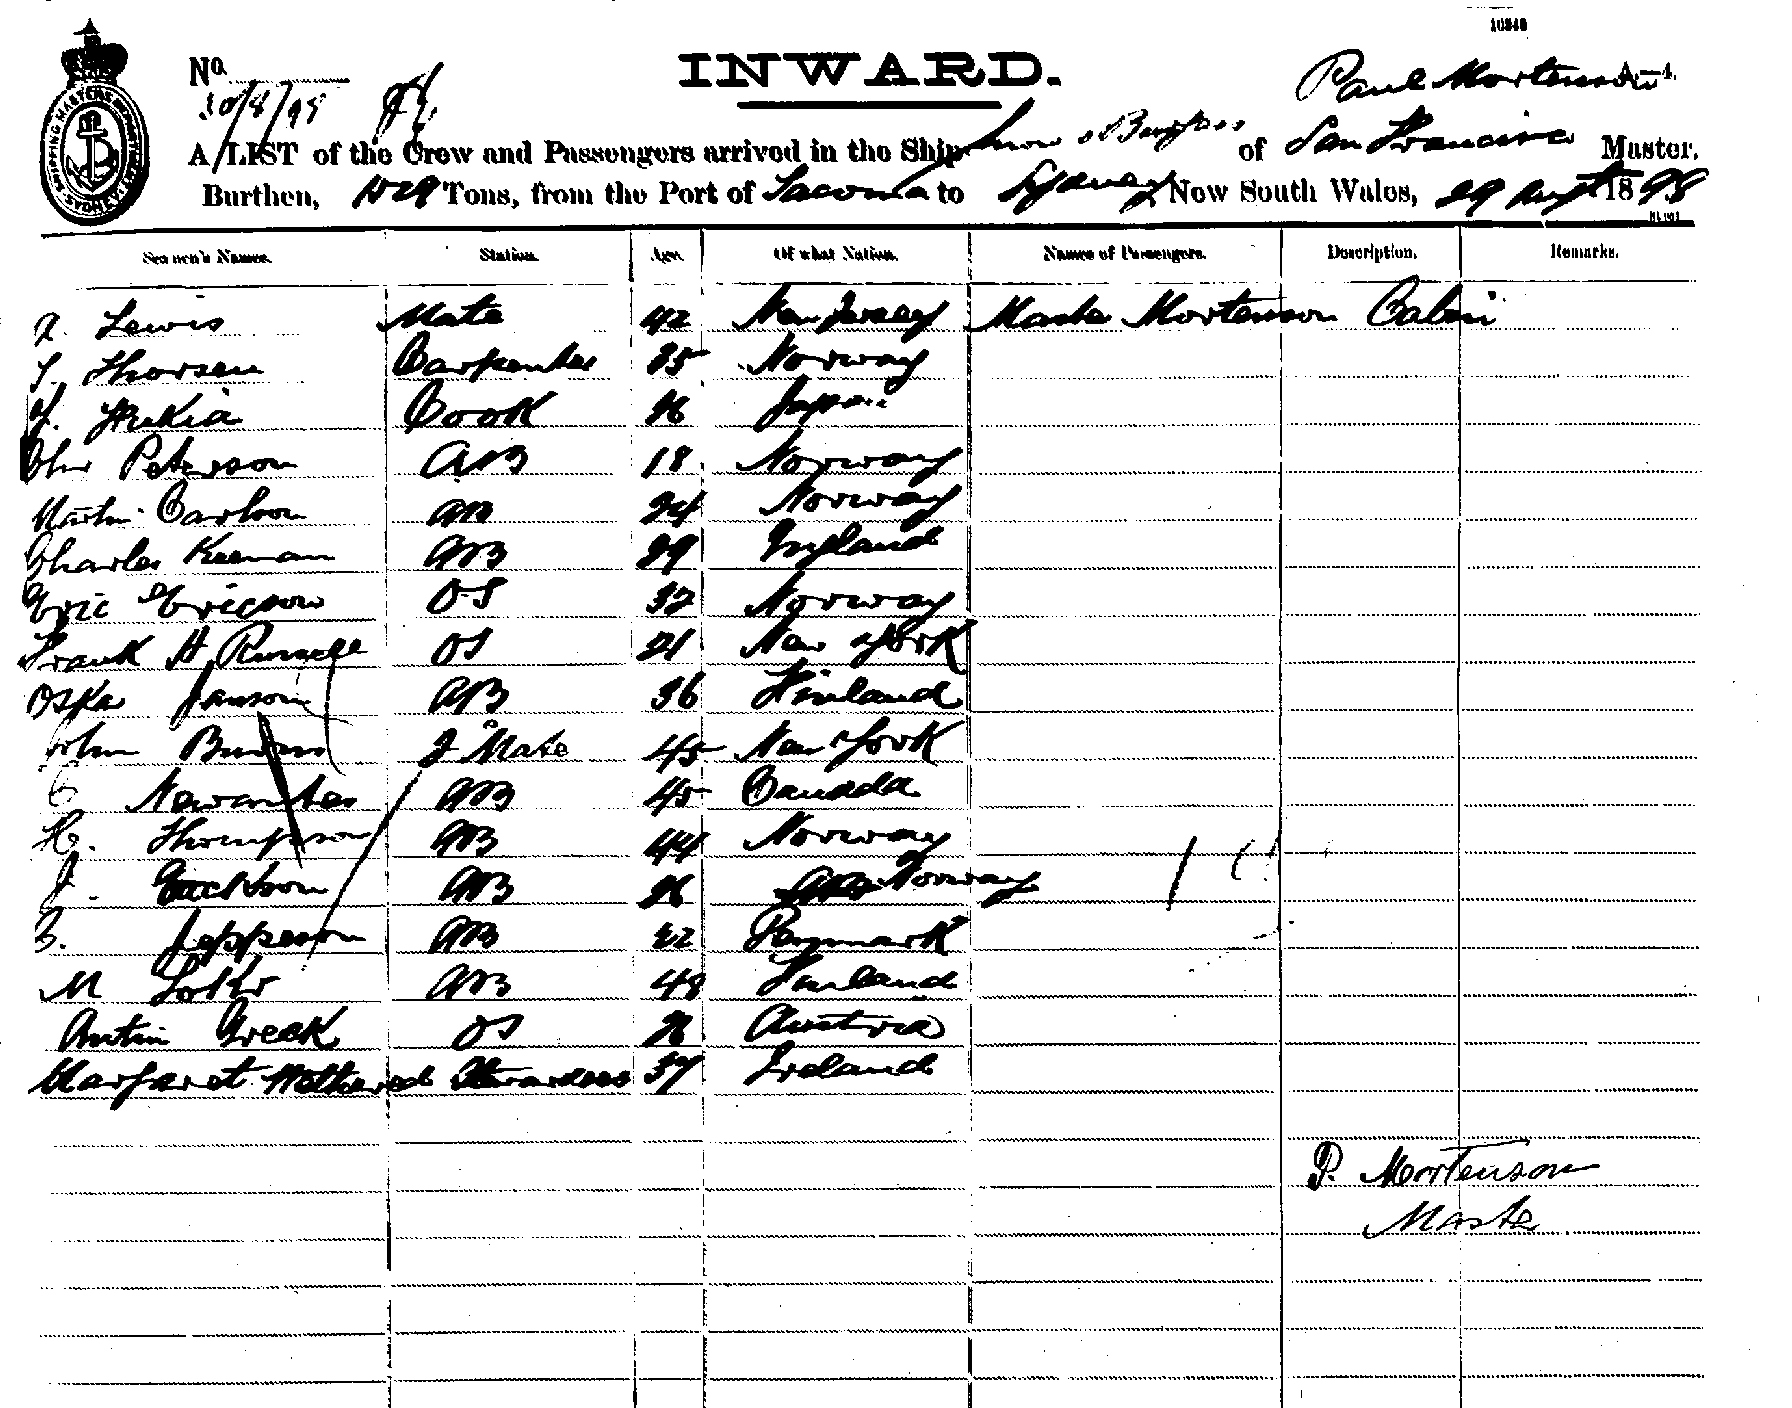 10340
No.
30/8/98
INWARD.
Paul Mortenson
A LIST of the Crew and Passengers arrived in the Ship Snow & Burgess of San Francisco Master,
Burthen, 1529 Tons, from the Port of Tacoma to Sydney New South Wales, 29 Augt 1898
SHIPPING MASTER'S SYDNEY
Seamen's Names. Station. Age. Of what Nation. Names of Passengers. Description. Remarks.
Lewis Mate 42 New Jersey Maste Mortenson Cabin
Thorsen Carpenter 25 Norway
Cook 26 Japan
Peterson AB 18 Norway
Martin Carlson AB 24 Norway
Charles Keenan AB 29 England
Eric Ericson OS 32 Norway
Frank H Russell OS 21 New York
Oska Janson AB 36 Finland
John 2 Mate 45 New York
AB 45 Canada
H. Thompson AB 44 Norway
J. AB 26 Norway
Jepperson AB 22 Denmark
M AB 48 Finland
Antin Greek OS 26 Austria
Margaret Wethered Stewardess 37 Ireland
P. Mortenson
Maste